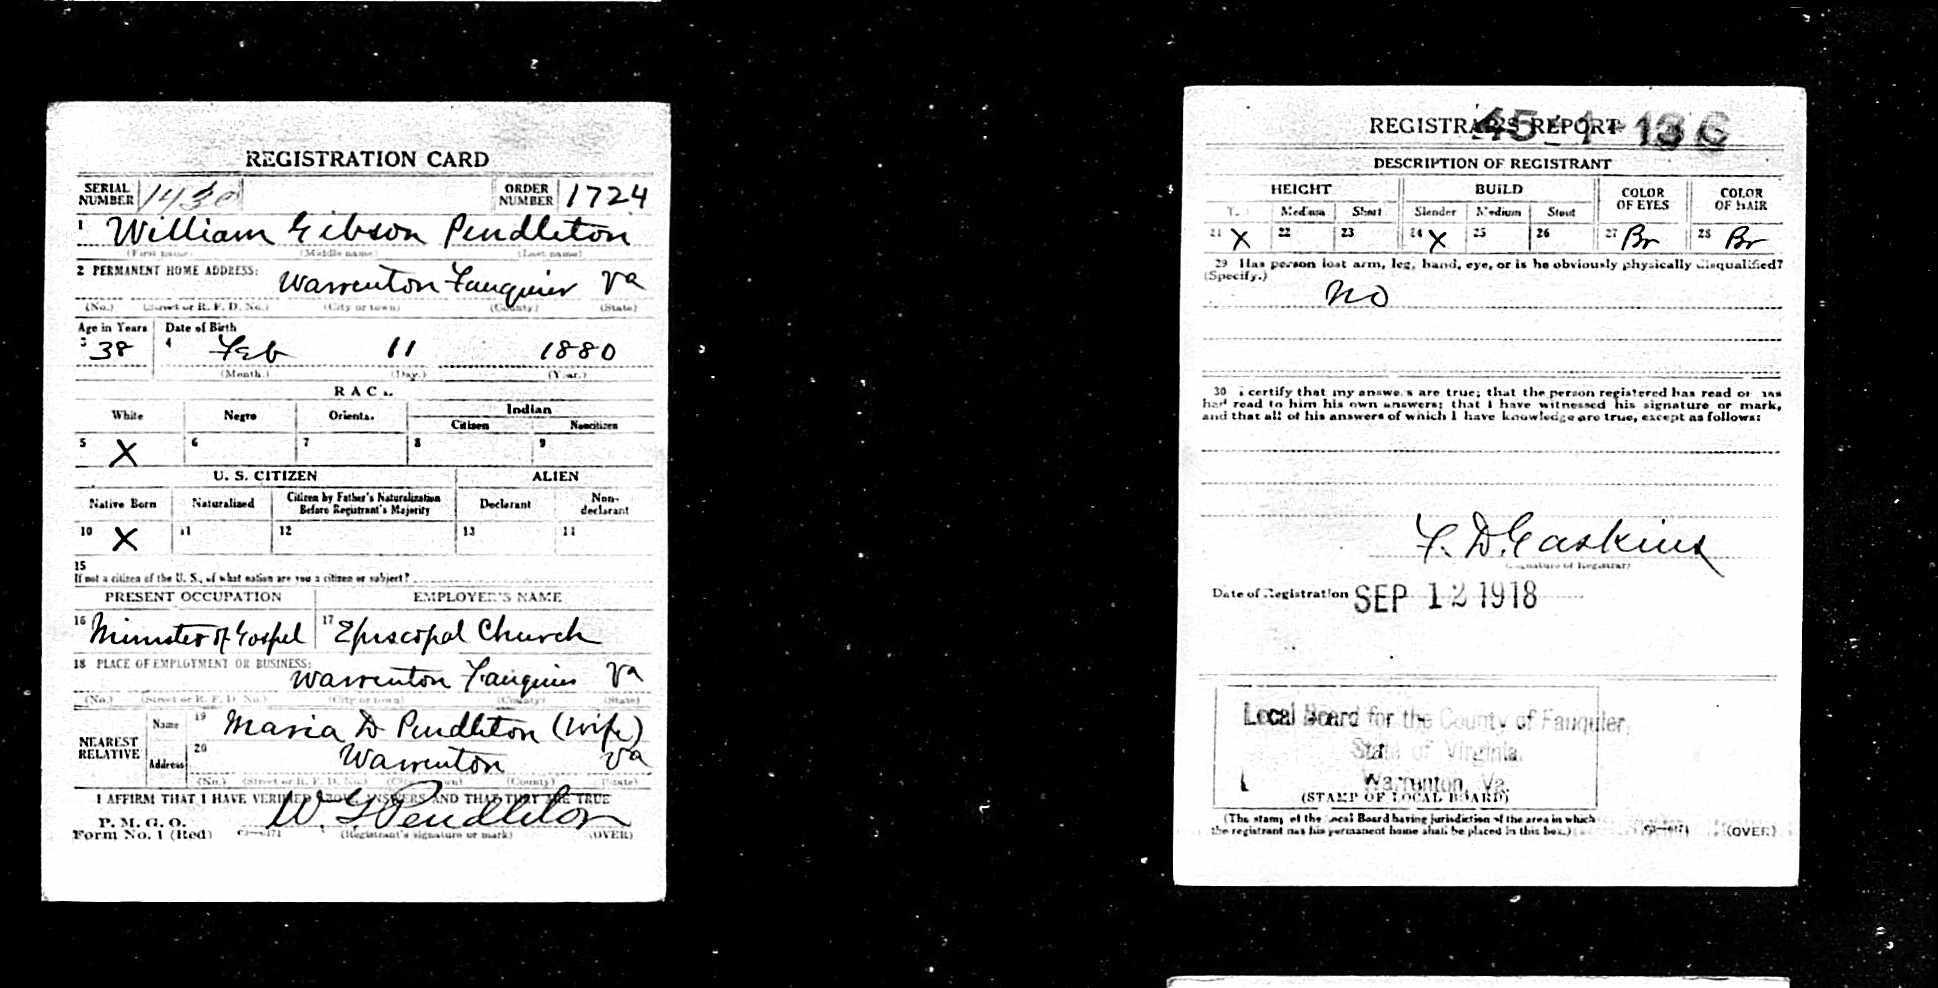 REGISTRATION CARD
SERIAL NUMBER 1430 ORDER NUMBER 1724
1 William Gibson Pendleton
(First name) (Middle name) (Last name)
2 PERMANENT HOME ADDRESS:
Warrenton Fauquier Va
(No.) (Street or R. F. D. No.) (City or town) (County) (State)
Age in Years Date of Birth
3 38 4 Feb 11 1880
(Month.) (Day.) (Year.)
RACE
White Negro Oriental Indian
Citizen Noncitizen
5 X 6 7 8 9
U. S. CITIZEN ALIEN
Native Born Naturalized Citizen by Father's Naturalization Before Registrant's Majority Declarant Non-declarant
10 X 11 12 13 14
15
If not a citizen of the U. S., of what nation are you a citizen or subject?
PRESENT OCCUPATION EMPLOYER'S NAME
16 Minister of Gospel 17 Episcopal Church
18 PLACE OF EMPLOYMENT OR BUSINESS:
Warrenton Fauquier Va
(No.) (Street or R. F. D. No.) (City or town) (County) (State)
NEAREST RELATIVE Name 19 Maria D Pendleton (wife)
Address 20 Warrenton Va
(No.) (Street or R. F. D. No.) (City or town) (County) (State)
I AFFIRM THAT I HAVE VERIFIED ABOVE ANSWERS AND THAT THEY ARE TRUE
P. M. G. O.
Form No. 1 (Red) W. G. Pendleton
(Registrant's signature or mark) (OVER)
REGISTRAR'S REPORT 45-1-136
DESCRIPTION OF REGISTRANT
HEIGHT BUILD COLOR OF EYES COLOR OF HAIR
Tall Medium Short Slender Medium Stout
21 X 22 23 24 X 25 26 27 Br 28 Br
29 Has person lost arm, leg, hand, eye, or is he obviously physically disqualified?
(Specify.)
no
30 I certify that my answers are true; that the person registered has read or has
had read to him his own answers; that I have witnessed his signature or mark,
and that all of his answers of which I have knowledge are true, except as follows:
F. D. Gaskins
(Signature of Registrar)
Date of Registration SEP 12 1918
Local Board for the County of Fauquier,
State of Virginia,
Warrenton, Va.
(STAMP OF LOCAL BOARD)
(The stamp of the Local Board having jurisdiction of the area in which
the registrant has his permanent home shall be placed in this box.) (OVER)